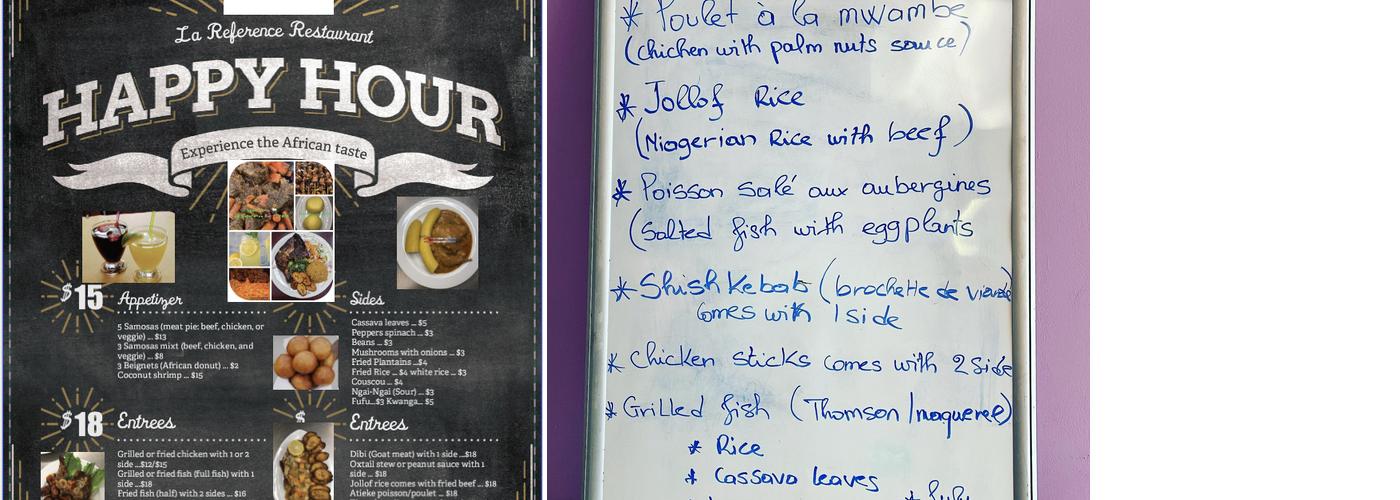 La Reference Restaurant
HAPPY HOUR
Experience the African taste
$15 Appetizer
5 Samosas (meat pie: beef, chicken, or
veggie) ... $13
3 Samosas mixt (beef, chicken, and
veggie) ... $8
3 Beignets (African donut) ... $2
Coconut shrimp ... $15
Sides
Cassava leaves ... $5
Peppers spinach ... $3
Beans ... $3
Mushrooms with onions ... $3
Fried Plantains ...$4
Fried Rice ... $4 white rice ... $3
Couscou ... $4
Ngai-Ngai (Sour) ... $3
Fufu...$3 Kwanga... $5
$18 Entrees
Grilled or fried chicken with 1 or 2
side ...$12/$15
Grilled or fried fish (full fish) with 1
side ...$18
Fried fish (half) with 2 sides ... $16
$ Entrees
Dibi (Goat meat) with 1 side ...$18
Oxtail stew or peanut sauce with 1
side ... $18
Jollof rice comes with fried beef ... $18
Atieke poisson/poulet ... $18
* Poulet à la mwambe
(chicken with palm nuts sauce)
* Jollof Rice
(Niogerian Rice with beef)
* Poisson salé aux aubergines
(Salted fish with eggplants
* Shish Kebab (brochette de viande
comes with 1 side
* Chicken sticks comes with 2 side
* Grilled fish (Thomson/maquerel)
* Rice
* Cassava leaves
* fufu